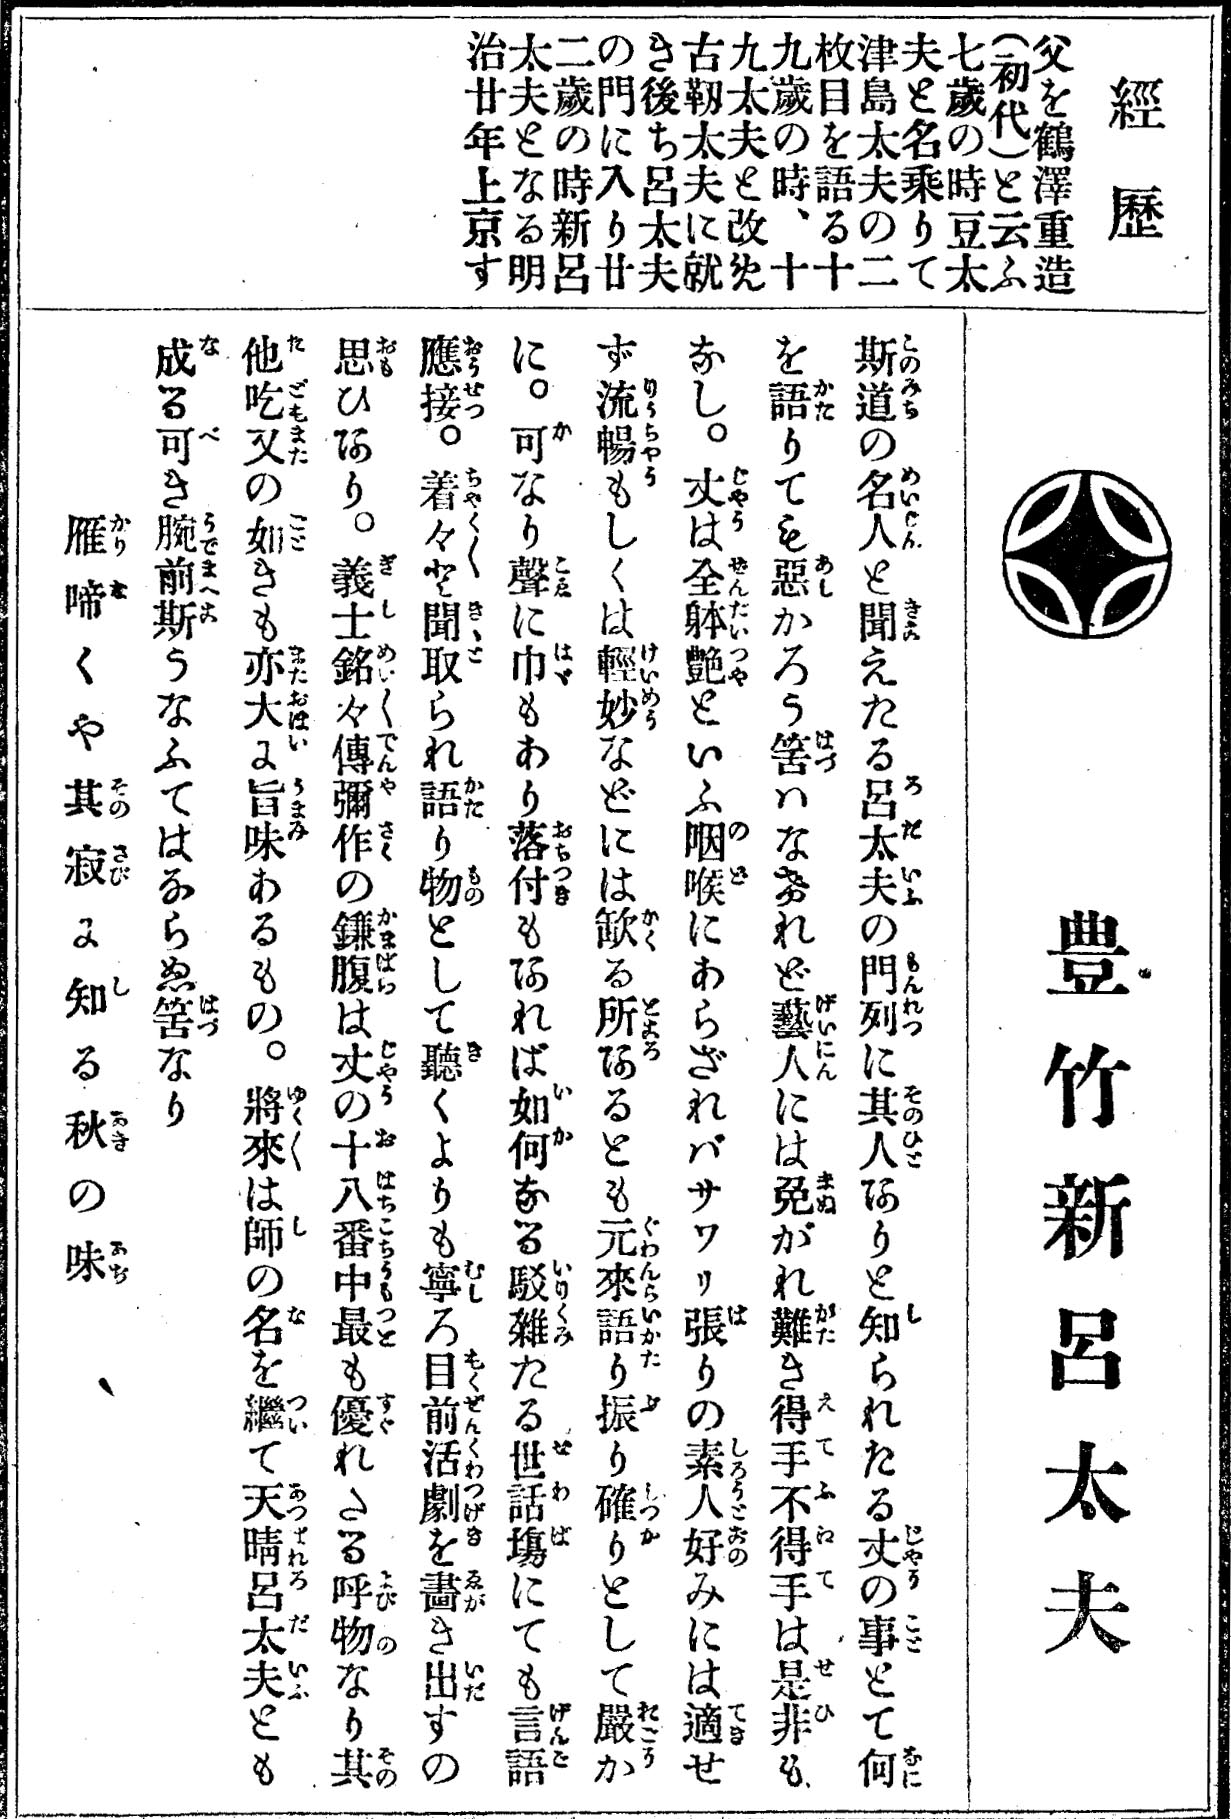 經歷
父を鶴澤重造
(初代)と云ふ
七歲の時豆太
夫と名乘りて
津島太夫の二
枚目を語る十
九歲の時、十
九太夫と改め
古靱太夫に就
き後ち呂太夫
の門に入り廿
二歲の時新呂
太夫となる明
治廿年上京す
豊竹新呂太夫
斯道の名人と聞えたる呂太夫の門列に其人ありと知られたる丈の事とて何
を語りても惡かろう筈ハなけれど藝人には免がれ難き得手不得手は是非も
なし。丈は全躰艶といふ咽喉にあらざれバサワリ張りの素人好みには適せ
ず流暢もしくは輕妙などには歉る所あるとも元來語り振り確りとして嚴か
に。可なり聲に巾もあり落付もあれば如何なる駁雜たる世話塲にても言語
應接。着々と聞取られ語り物として聽くよりも寧ろ目前活劇を畵き出すの
思ひあり。義士銘々傳彌作の鎌腹は丈の十八番中最も優れたる呼物なり其
他吃又の如きも亦大に旨味あるもの。將來は師の名を繼て天晴呂太夫とも
成る可き腕前斯うなふてはならぬ筈なり
雁啼くや其寂に知る秋の味